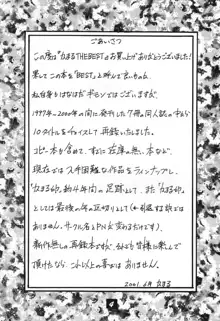 ごあいさつ
この度は「なまるTHE BEST」をお買上げありがとうございました!
果してこの本を"BEST"と呼んで良いものか、
私自身もはなはだギモンではございますが、
1997年〜2000年の間に発刊した7冊の同人誌の中から
10タイトルをチョイスして再録いたしました。
コピー本を含めて、すでに在庫の無い本など、
現在では入手困難な作品をラインナップし、
約4年間の足跡として、また
としては最後の年の区切りとして(←引退する訳では
ありません、サークル名とPNが変わるだけです)
新作無しの再録本ですが、などと皆様に楽しんで
頂けたなら、これ以上の喜びはありません。
2001.6月